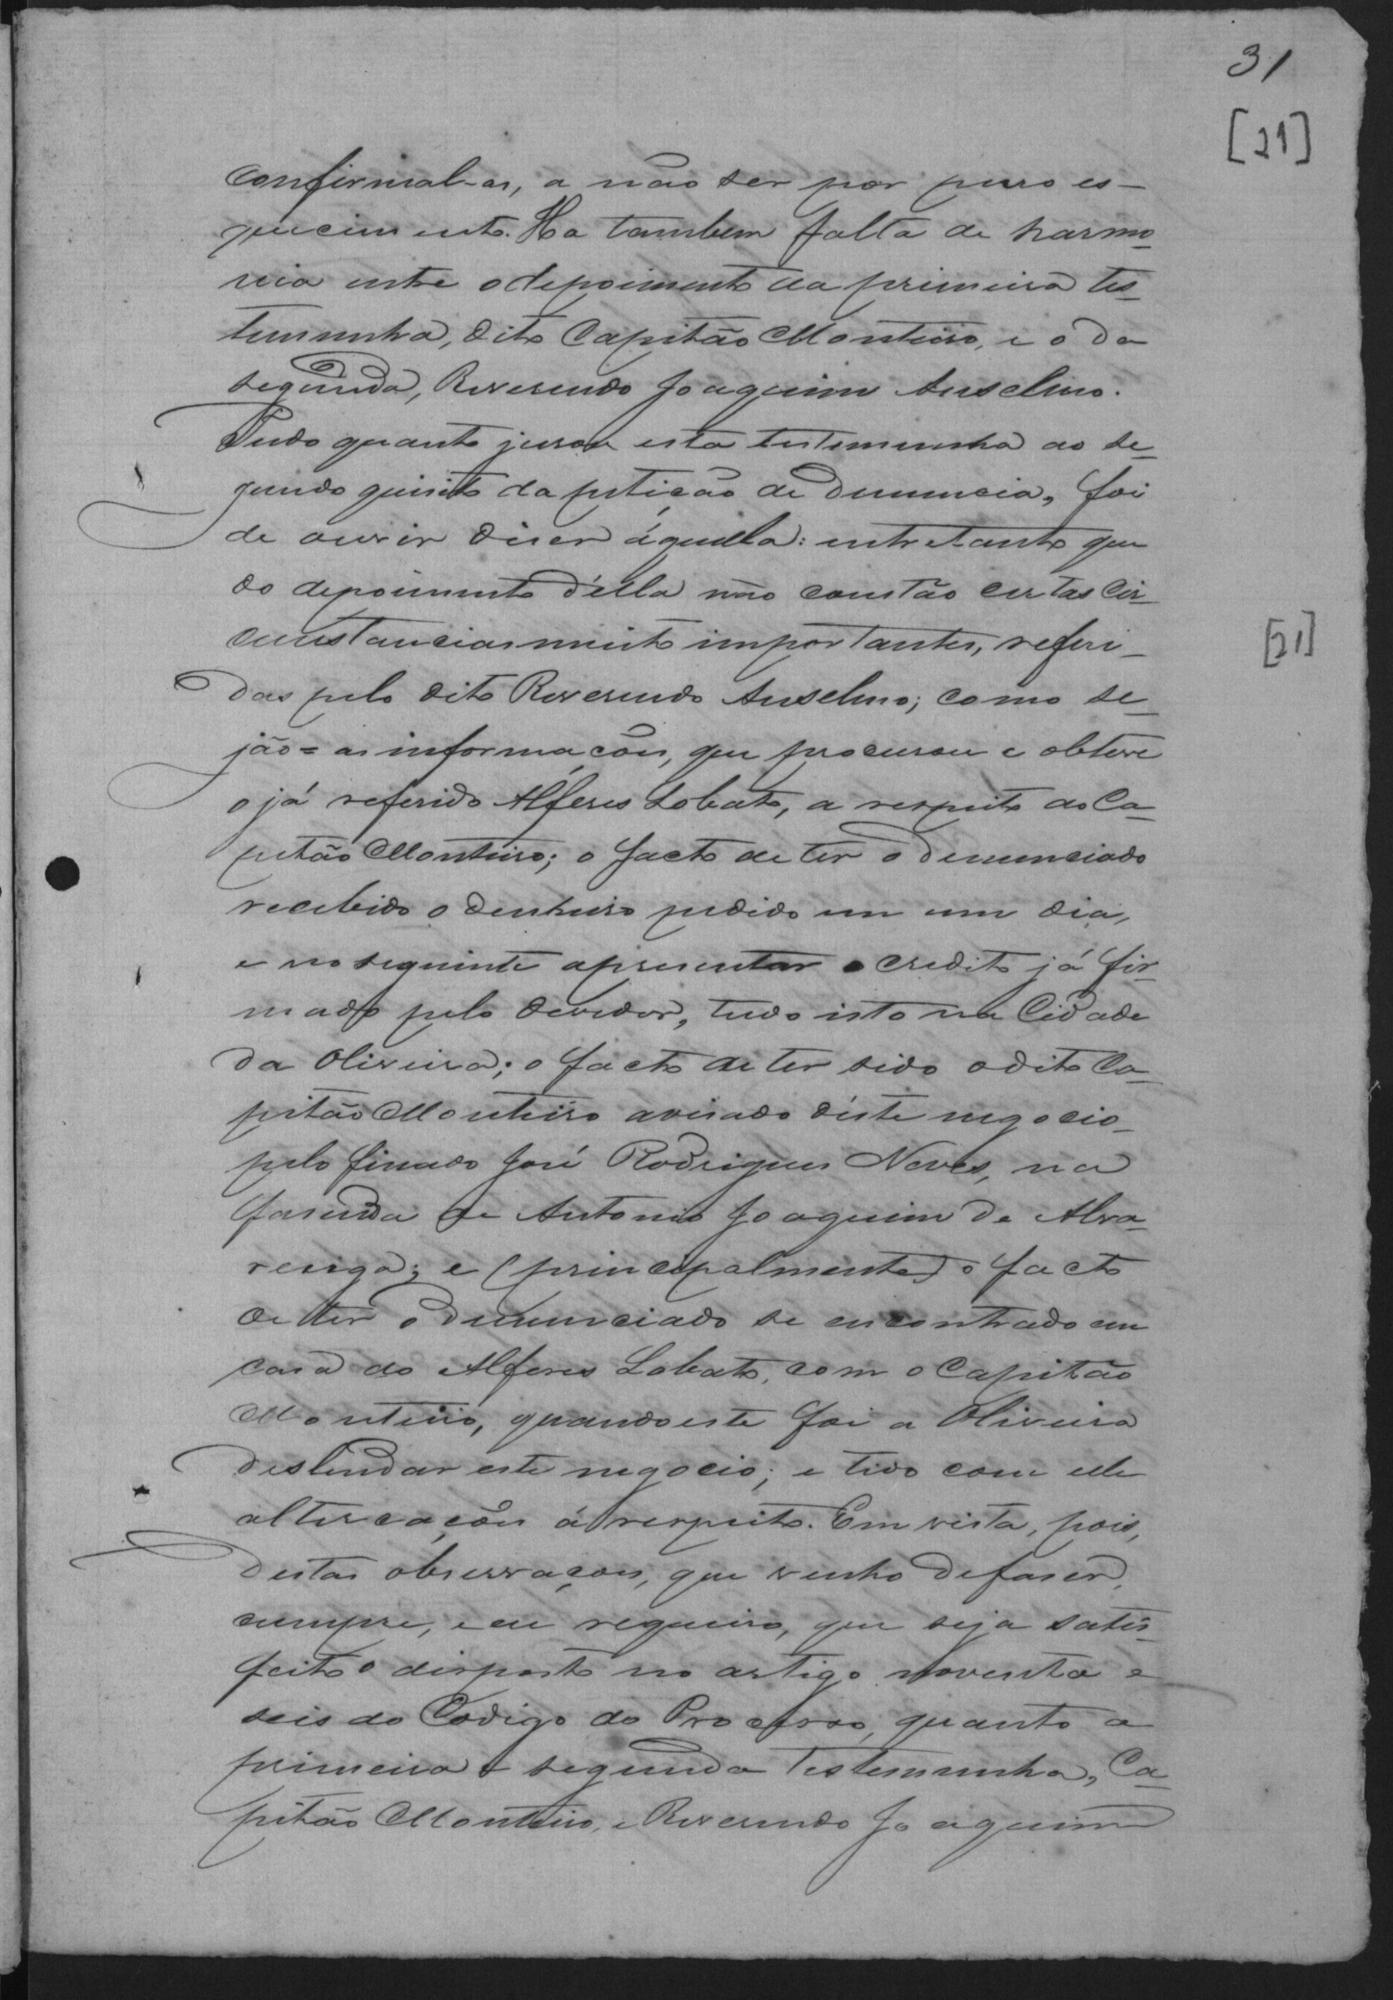 31
[21]
confirmal-as, a não ser por puro es-
quecimento. Ha tambem falta de harmo-
nia entre o depoimento da primeira tes-
temunha, dito Capitão Monteiro, e o da
segunda, Reverendo Joaquim Anselmo.
Tudo quanto jurou esta testemunha ao se-
gundo quisito da petição de denuncia, foi
de ouvir diser áquella: entretanto que
do depoimento d'ella não constão certas cir-
cunstancias muito importantes, referi-
das pelo dito Reverendo Anselmo; como se-
jão = as informações, que procurou e obteve
o já referido Alferes Lobato, a respeito do Ca-
pitão Monteiro; o facto de ter o denunciado
recebido o dinheiro pedido em um dia,
e no seguinte apresentar o credito já fir-
mado pelo devedor, tudo isto na Cidade
da Oliveira; o facto de ter sido o dito Ca-
pitão Monteiro avisado d'este negocio
pelo finado José Rodrigues Neves, na
fasenda de Antonio Joaquim de Alva-
renga; e (principalmente) o facto
de ter o denunciado se encontrado em
casa do Alferes Lobato, com o Capitão
Monteiro, quando este foi a Oliveira
deslindar este negocio; e tido com elle
altercações á respeito. Em vista, pois,
destas observações, que venho de faser,
cumpre, e eu requeiro, que seja satis-
feito o disposto no artigo noventa e
seis do Codigo do Processo, quanto a
primeira e segunda testemunha, Ca-
pitão Monteiro, e Reverendo Joaquim
[21]